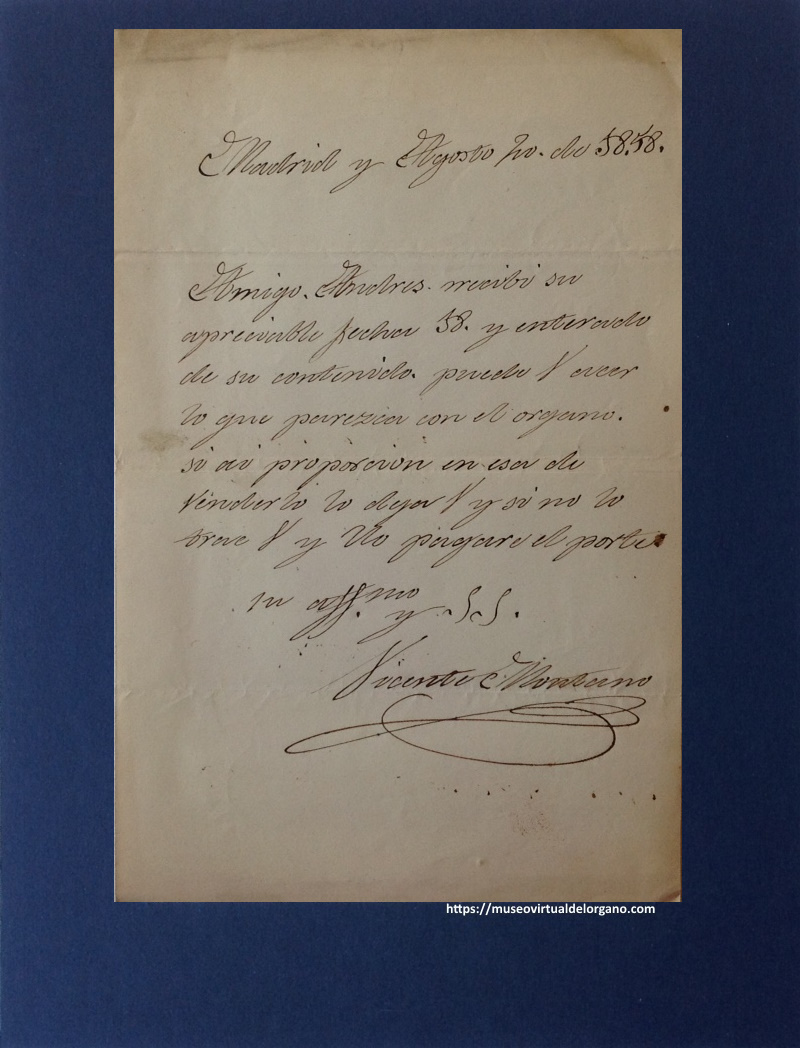 Madrid y Agosto 20. de 18.78.
Amigo. Andres. recibi su
apreciable fecha 18. y enterado
de su contenido. puede V acer
lo que parezca con el organo.
si ai proporcion en esa de
Venderlo lo deja V y si no lo
trae V y Yo pagare el porte
su aff.mo y S S.
Vicente Montano
https://museovirtualdelorgano.com